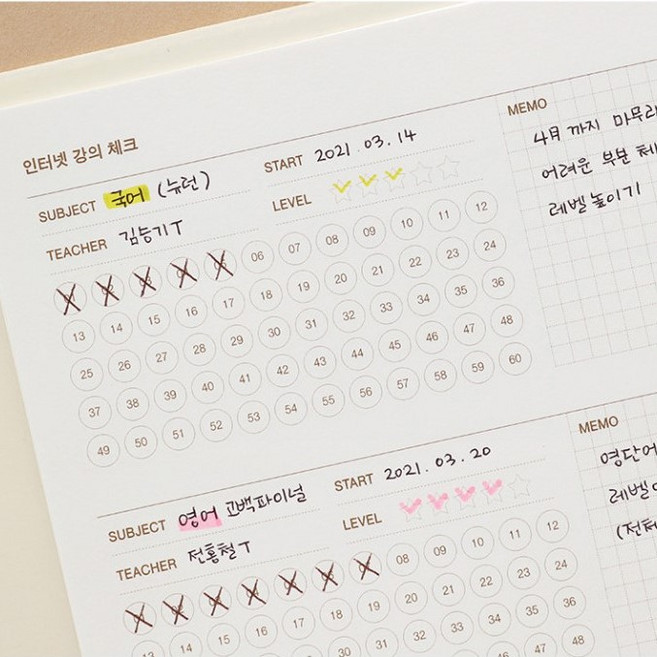 인터넷 강의 체크
SUBJECT 국어 (뉴런)
START 2021.03.14
MEMO
TEACHER 김승기T
LEVEL
4월 까지 마무리
어려운 부분 체
레벨 높이기
06 07 08 09 10 11 12
13 14 15 16 17 18 19 20 21 22 23 24
25 26 27 28 29 30 31 32 33 34 35 36
37 38 39 40 41 42 43 44 45 46 47 48
49 50 51 52 53 54 55 56 57 58 59 60
SUBJECT 영어 고백파이널
START 2021.03.20
MEMO
TEACHER 전홍철T
LEVEL
영단어
레벨
(전체
08 09 10 11 12
13 14 15 16 17 18 19 20 21 22 23 24
30 31 32 33 34 35 36
45 46 47 48